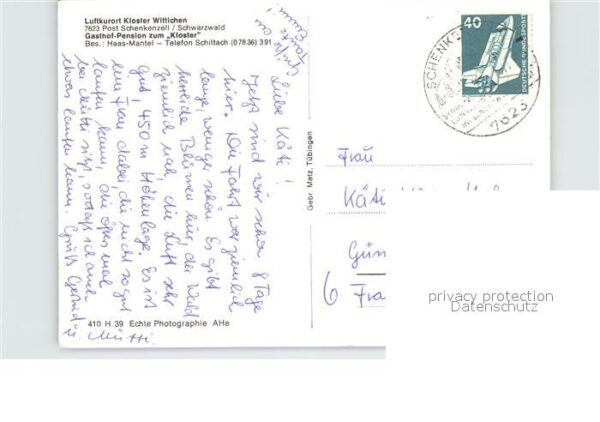 Luftkurort Kloster Wittichen
7623 Post Schenkenzell / Schwarzwald
Gasthof-Pension zum „Kloster"
Bes.: Haas-Mantel – Telefon Schiltach (07836) 391
Liebe Käti!
Jetzt sind wir schon 8 Tage
hier. Die Fahrt war ziemlich
lang, weniger schön. Es gibt
hier, der Wald
ziemlich nah, die Luft sehr
gut, 450 m Höhenlage. Es ist
eine Frau dabei, die nicht so gut
laufen kann, die öfters mal
bei Mutti sitzt, sodaß ich auch
etwas laufen kann. Gruß
Mutti
410 H 39 Echte Photographie AHe
Gebr. Metz, Tübingen
40
DEUTSCHE BUNDESPOST
SCHENKE
7623
Frau
Käti
Gün
6 Fra
privacy protection
Datenschutz